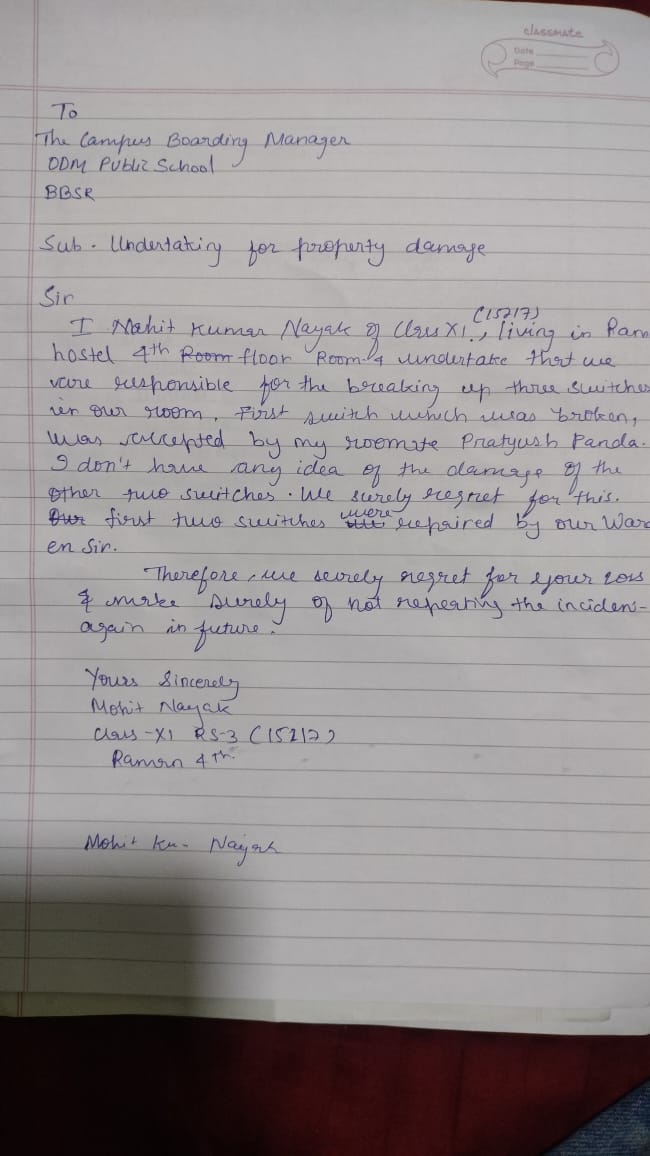 classmate
Date
Page
To
The Campus Boarding Manager
ODM Public School
BBSR
Sub. Undertaking for property damage
Sir
(15217)
I Mohit Kumar Nayak of Class XI., living in Ram
hostel 4th Room floor Room-4 undertake that we
were responsible for the breaking up three switches
in our room. First switch which was broken,
was accepted by my roomate Pratyush Panda.
I don't have any idea of the damage of the
other two switches. We surely regret for this.
Our first two switches were repaired by our Ward
en Sir.
Therefore, we surely regret for your loss
& make surely of not repeating the inciden-
again in future.
Yours Sincerely
Mohit Nayak
Class-XI RS-3 (15217)
Raman 4th
Mohit Ku- Nayak